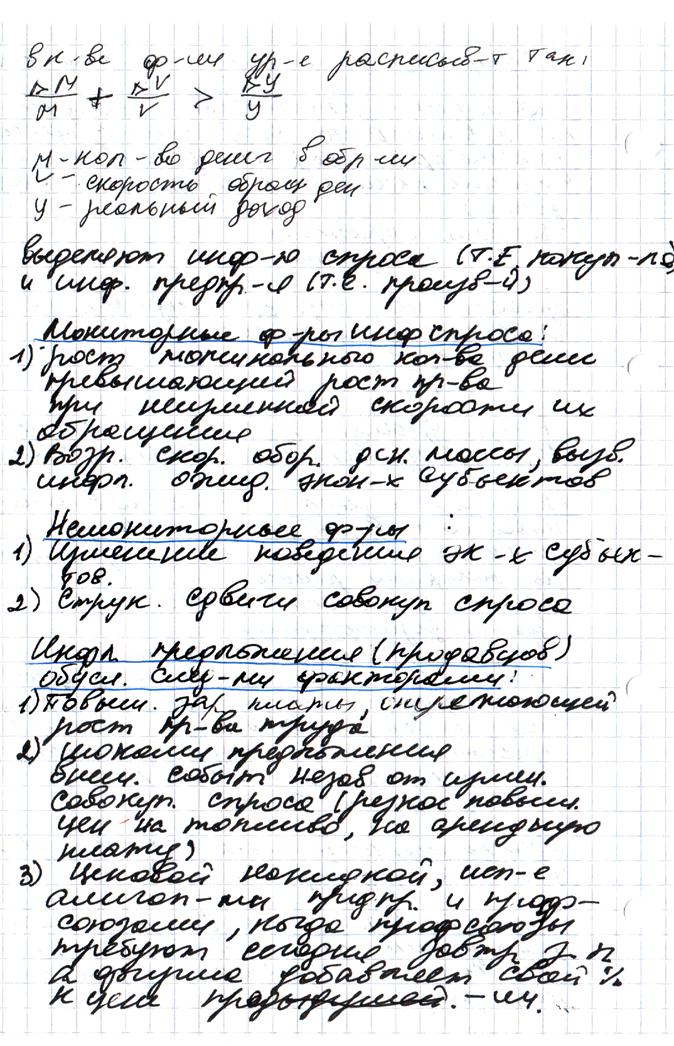 в к-ве ф-ли ур-е расписыв-т так:
ΔM/M + ΔV/V > ΔY/Y
M - кол-во денег в обр-ии
V - скорость обращ ден
Y - реальный доход
выделяют инф-ю спроса (т.е. покуп-ля)
и инф. предпр-я (т.е. произв-й)
Мониторные ф-ры инф спроса:
1) рост номинального кол-ва денег
превышающий рост пр-ва
при неизменной скорости их
обращения
2) Возр. скор. обор. ден. массы, вызв.
инфл. ожид. экон-х субъектов
Немониторные ф-ры :
1) Изменение поведения эк-х субъек-
тов.
2) Струк. сдвиги совокуп спроса
Инфл. предложения (продавцов)
обусл. след-ми факторами:
1) Повыш. зар платы, опережающей
рост пр-ва труда
2) шоками предложения
внеш. событ незав от измен.
совокуп. спроса (резкое повыш.
цен на топливо, на арендную
плату)
3) Ценовой накидкой, исп-е
олигоп-ми предпр. и проф-
союзами, когда профсоюзы
требуют сегодня завтр з п
а другие добавляет свой %
к цене